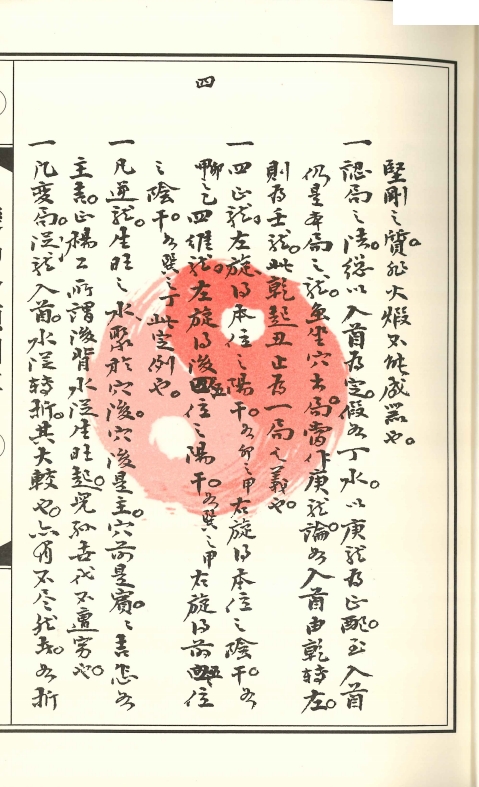 四
堅剛之質。非火煅不能成器也。
一認局之法。總以入首為定。假如丁水。以庚龍為正配。至入首
仍是本局之龍。無坐穴出局。當作庚龍論。如入首由乾轉左。
則為壬龍。此乾起丑止為一局之義也。
一四正龍左旋得本位之陽干。如卯之甲右旋得本位之陰干。如
卯之乙四維龍。左旋得後五位之陽干。如巽之甲右旋得前五位
之陰干。如巽之丁此定例也。
一凡逆龍生旺之水聚於穴後。穴後是主。穴前是賓。之書怎如
主書。正楊公所謂後背水從生旺起。兒孫世代不遭窮也。
一凡變局。從龍入首。水從轉折。其大較也。亦有不盡然者。如折